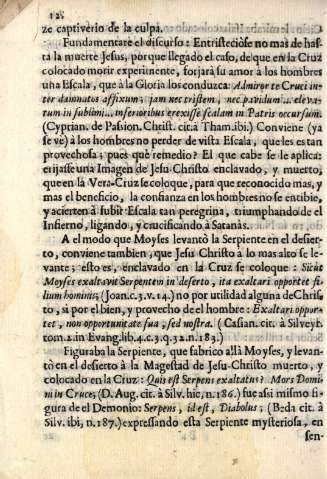 12.
ze captiverio de la culpa.
Fundamentaré el discurso: Entristecióse no mas de has-
ta la muerte Jesus, porque llegado el caso, de que en la Cruz
colocado morir experimente, forjará su amor à los hombres
una Escala, que à la Gloria los conduzca: Admiror te Cruci in-
ter damnatos affixum; jam nec tristem, nec pavidum... eleva-
tum in sublimi... inferioribus erexisse scalam in Patris occursum.
(Cyprian. de Passion. Christ. cit. à Tham. ibi.) Conviene (ya
se vè) à los hombres no perder de vista Escala, que les es tan
provechosa; pues què remedio? El que cabe se le aplica:
erijasse una Imagen de Jesu-Christo enclavado, y muerto,
que en la Vera-Cruz se coloque, para que reconocido mas, y
mas el beneficio, la confianza en los hombres no se entibie,
y acierten à subir Escala tan peregrina, triumphando de el
Infierno, ligando, y crucificando à Satanàs.
A el modo que Moyses levantò la Serpiente en el desier-
to, conviene tambien, que Jesu Christo à lo mas alto se le-
vante; esto es, enclavado en la Cruz se coloque: Sicùt
Moyses exaltavit Serpentem in deserto, ita exaltari oportet fi-
lium hominis; (Joan. c. 3. v. 14.) no por utilidad alguna de Chris-
to, si por el bien, y provecho de el hombre: Exaltari oppor-
tet, non opportunitate sua, sed nostra. (Casian. cit. à Silveyr.
tom. 2. in Evang. lib. 4. c. 3. q. 32. n. 183.)
Figuraba la Serpiente, que fabricò allà Moyses, y levan-
tò en el desierto à la Magestad de Jesu-Christo muerto, y
colocado en la Cruz: Quis est Serpens exaltatus? Mors Domi-
ni in Cruce, (D. Aug. cit. à Silv. hic, n. 186.) fue assi mismo fi-
gura de el Demonio: Serpens, id est, Diabolus; (Beda cit. à
Silv. ibi, n. 187.) expressando esta Serpiente mysteriosa, en
sen-